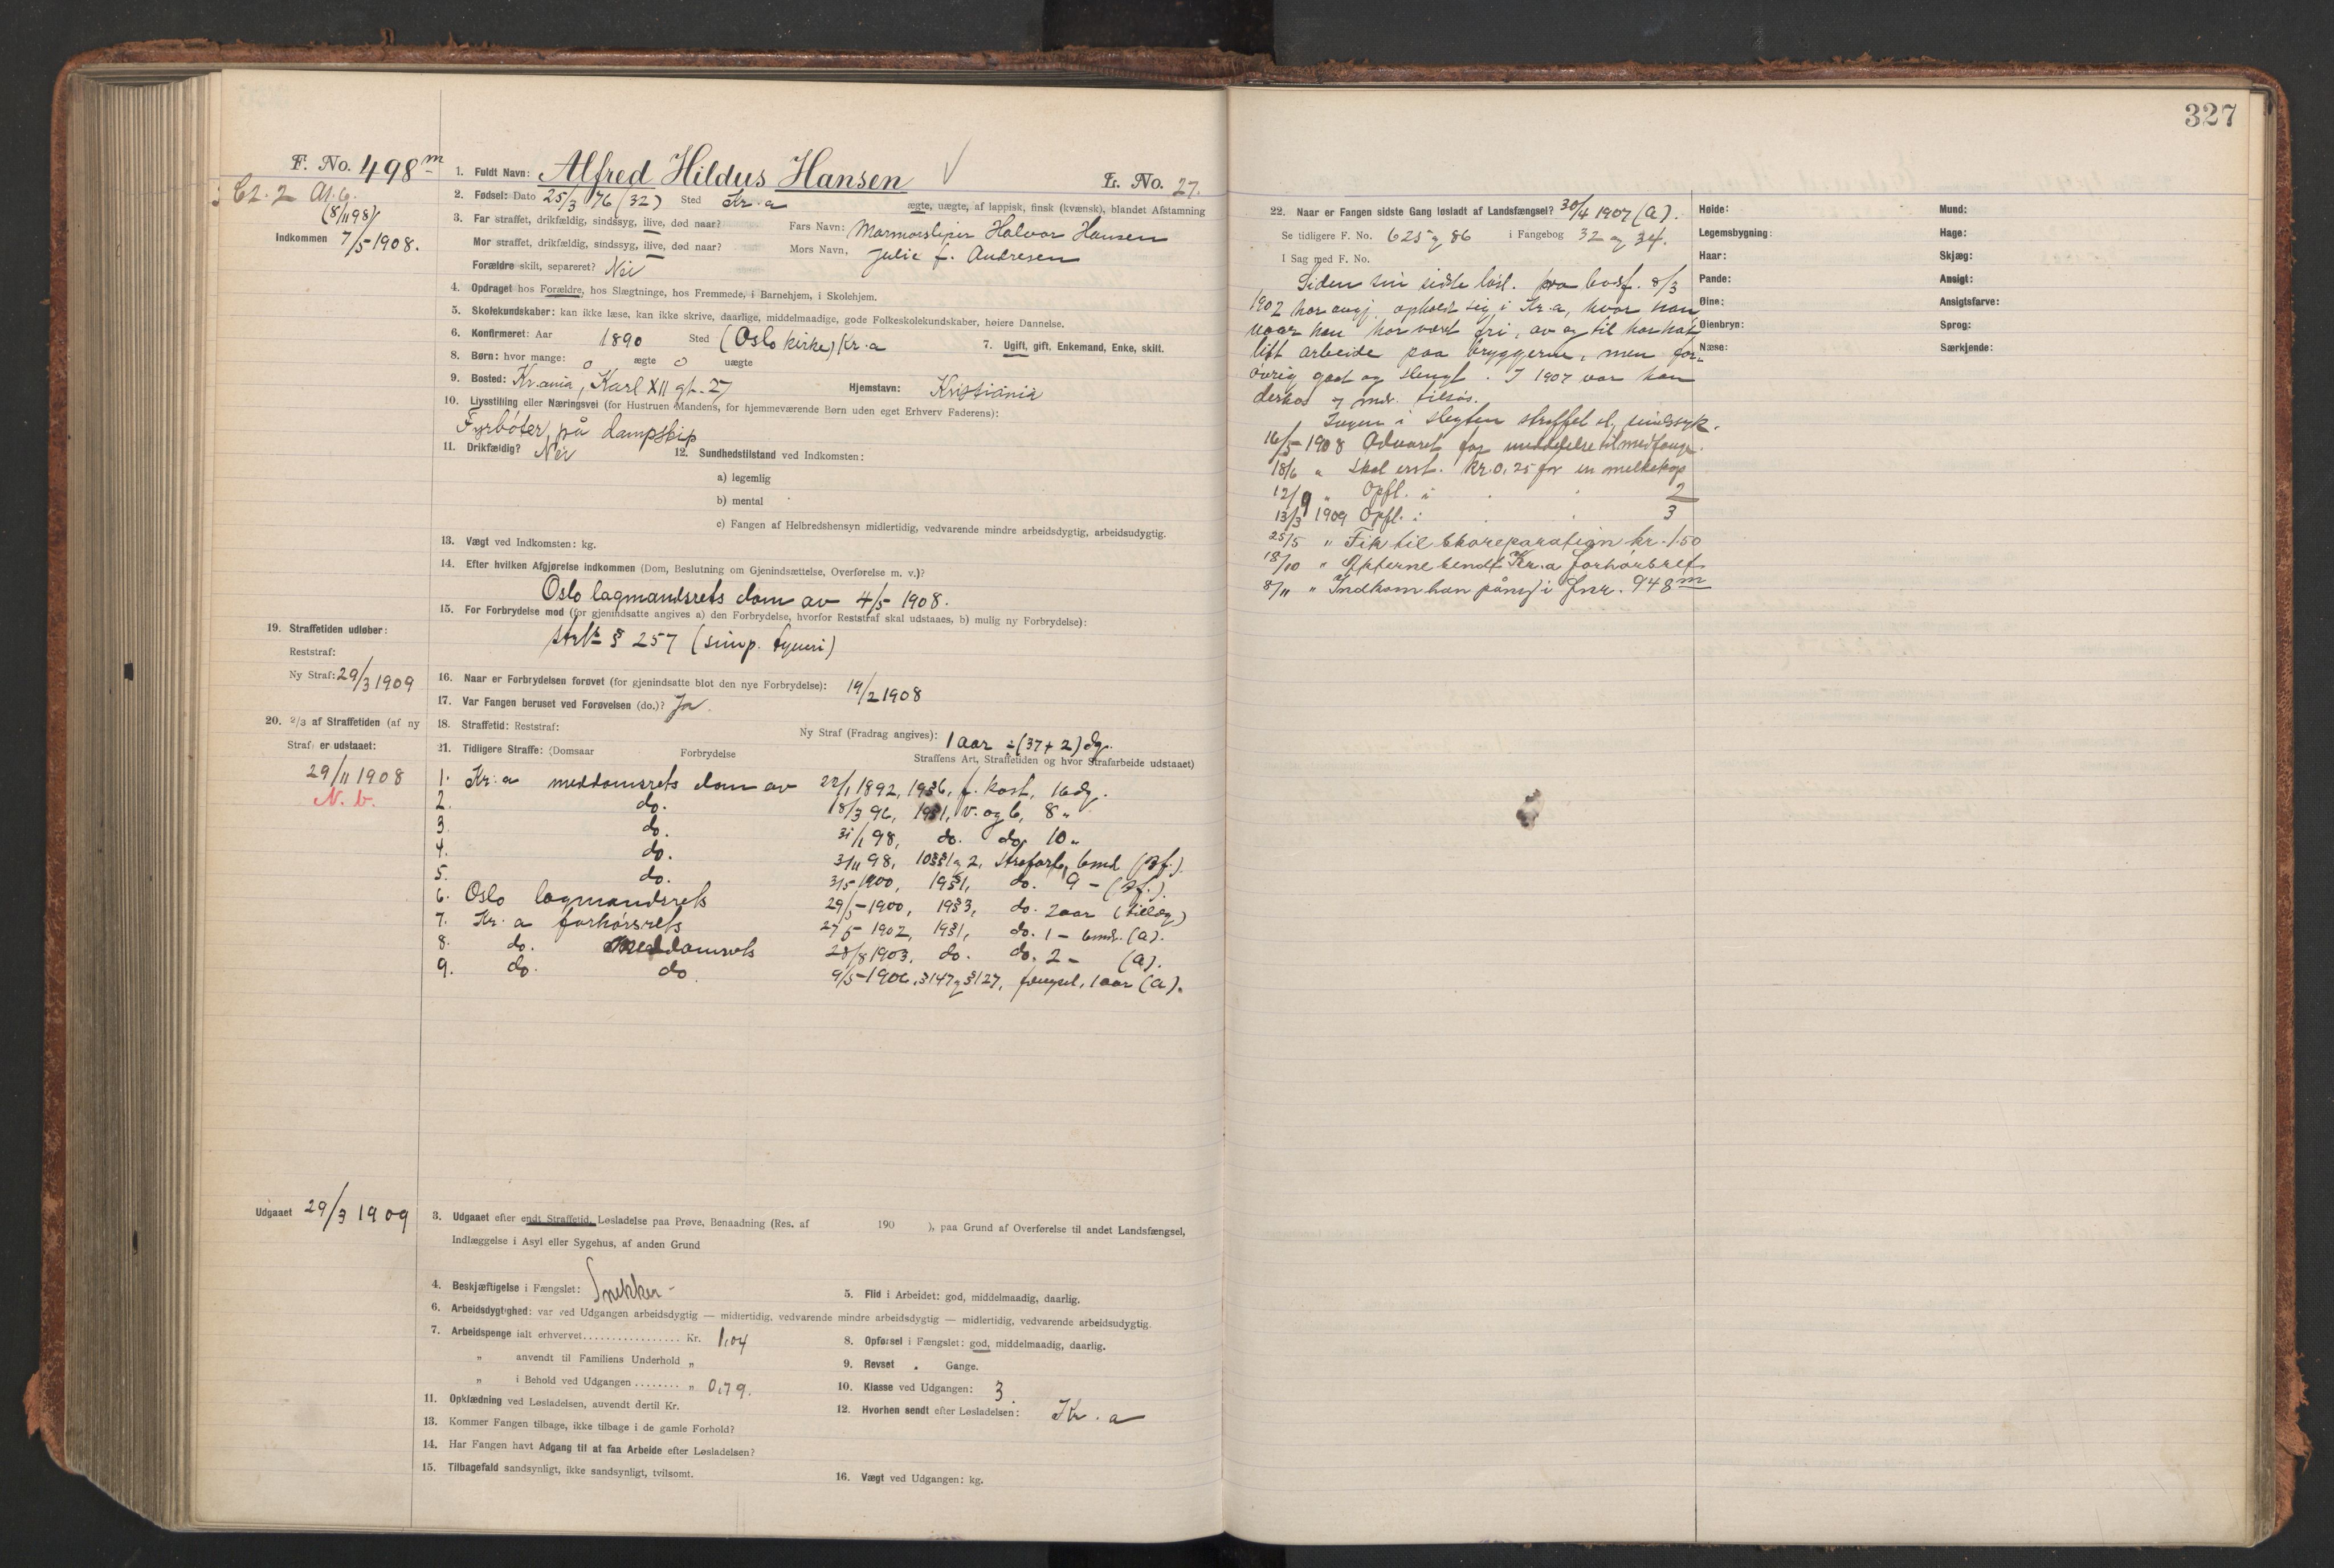 327
F. No. 498 m
Cl. 2 Al. 6.
(8/11 98)
Indkommen 7/5 1908.
1. Fuldt Navn: Alfred Hildus Hansen
L. No. 27.
2. Fødsel: Dato 25/3 76 (32) Sted Kr.a
ægte, uægte, af lappisk, finsk (kvænsk), blandet Afstamning
3. Far straffet, drikfældig, sindssyg, ilive, død naar? Fars Navn: Marmorsliper Halvor Hansen
Mor straffet, drikfældig, sindssyg, ilive, død naar? Mors Navn, Julie f. Andresen
Forældre skilt, separeret? Nei
4. Opdraget hos Forældre, hos Slægtninge, hos Fremmede, i Barnehjem, i Skolehjem.
5. Skolekundskaber: kan ikke læse, kan ikke skrive, daarlige, middelmaadige, gode Folkeskolekundskaber, høiere Dannelse.
6. Konfirmeret: Aar 1890 Sted (Oslo kirke) Kr.a 7. Ugift, gift, Enkemand, Enke, skilt.
8. Børn: hvor mange: 0 ægte 0 uægte
9. Bosted: Kr.ania, Karl XII gt. 27 Hjemstavn: Kristiania
10. Livsstilling eller Næringsvei (for Hustruen Mandens, for hjemmeværende Børn uden eget Erhverv Faderens):
Fyrbøter på dampskip
11. Drikfældig? Nei 12. Sundhedstilstand ved Indkomsten:
a) legemlig
b) mental
c) Fangen af Helbredshensyn midlertidig, vedvarende mindre arbeidsdygtig, arbeidsudygtig.
13. Vægt ved Indkomsten: kg.
14. Efter hvilken Afgjørelse indkommen (Dom, Beslutning om Gjenindsættelse, Overførelse m. v.)?
Oslo lagmandsrets dom av 4/5 1908.
15. For Forbrydelse mod (for gjenindsatte angives a) den Forbrydelse, hvorfor Reststraf skal udstaaes, b) mulig ny Forbrydelse):
§ 257 (simp. tyveri)
19. Straffetiden udløber:
Reststraf:
Ny Straf: 29/3 1909
16. Naar er Forbrydelsen forøvet (for gjenindsatte blot den nye Forbrydelse): 19/2 1908
17. Var Fangen beruset ved Forøvelsen (do.)? Ja.
20. 2/3 af Straffetiden (af ny
Straf) er udstaaet:
29/11 1908
N. b.
18. Straffetid: Reststraf: Ny Straf (Fradrag angives): 1 aar ÷ (37 + 2) dg.
21. Tidligere Straffe: (Domsaar Forbrydelse Straffens Art, Straffetiden og hvor Strafarbeide udstaaet)
1. Kr.a meddomsrets dom av 22/1 1892, 19§6, f. kost, 16 dg.
2. do. 18/3 96, 19§1, v. og b, 8 "
3. do. 31/1 98, do. do. 10 "
4. do. 3/11 98, 10§§1 og 2, strafarb, 6 md (Bf.).
5. do. 3/5 1900, 19§1, do. 9 - (Bf.).
6. Oslo lagmandsrets 29/5 - 1900, 19§3, do. 2 aar (tillæg)
7. Kr.a forhørsrets 27/5 - 1902, 19§1, do. 1 - 6 mdr. (a).
8. do. Meddomsrets 28/8 1903, do. do. 2 - (a).
9. do. do. 9/5 - 1906, §147 og §127, fængsel, 1 aar (a).
Udgaaet 29/3 1909
3. Udgaaet efter endt Straffetid, Løsladelse paa Prøve, Benaadning (Res. af 190 ), paa Grund af Overførelse til andet Landsfængsel,
Indlæggelse i Asyl eller Sygehus, af anden Grund
4. Beskjæftigelse i Fængslet: Snekker - 5. Flid i Arbeidet: god, middelmaadig, daarlig.
6. Arbeidsdygtighed: var ved Udgangen arbeidsdygtig — midlertidig, vedvarende mindre arbeidsdygtig — midlertidig, vedvarende arbeidsudygtig.
7. Arbeidspenge ialt erhvervet Kr. 1,04 8. Opførsel i Fængslet: god, middelmaadig, daarlig.
" anvendt til Familiens Underhold " 9. Revset . Gange.
" i Behold ved Udgangen " 0,79. 10. Klasse ved Udgangen: 3.
11. Opklædning ved Løsladelsen, anvendt dertil Kr. 12. Hvorhen sendt efter Løsladelsen: Kr.a
13. Kommer Fangen tilbage, ikke tilbage i de gamle Forhold?
14. Har Fangen havt Adgang til at faa Arbeide efter Løsladelsen?
15. Tilbagefald sandsynligt, ikke sandsynligt, tvilsomt. 16. Vægt ved Udgangen: kg.
22. Naar er Fangen sidste Gang løsladt af Landsfængsel? 30/4 1907 (a).
Se tidligere F. No. 625 og 86 i Fangebog 32 og 34.
I Sag med F. No.
Siden sin sidste løsl. fra bodsf. 8/3
1902 har angj. opholdt sig i Kr.a, hvor han,
naar han har været fri, av og til har hat
litt arbeide paa bryggerne, men for-
øvrig gaat og slengt. I 1907 var han
derhos 7 mdr. tilsøs.
Ingen i slegten straffet el. sindssyk.
16/5 - 1908 Advaret for meddelelse til medfange.
18/6 " Skal erst. kr. 0,25 for en melkekop
12/9 " Opfl. i 2
13/3 1909 Opfl. i 3
25/5 " Fik til skoreparation kr. 1.50
18/10 " Akterne sendt Kr.a forhørsret
8/11 " Indkom han påny i Fnr. 948 m
Høide:
Legemsbygning:
Haar:
Pande:
Øine:
Øienbryn:
Næse:
Mund:
Hage:
Skjæg:
Ansigt:
Ansigtsfarve:
Sprog:
Særkjende: